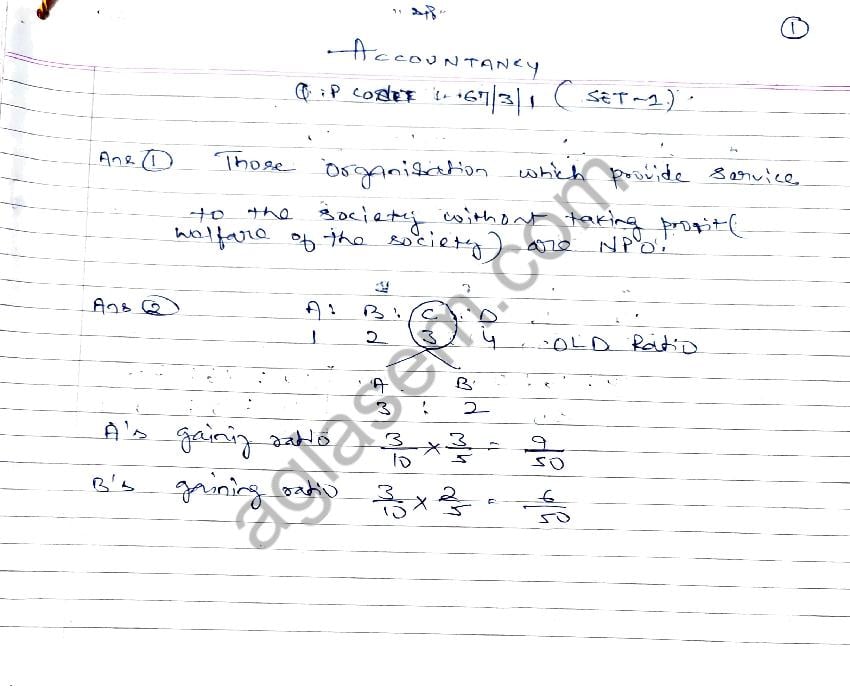 1
ACCOUNTANCY
67/3/1 (SET-1)
Ans 1 Those organisation which provide service
to the society without taking profit (
welfare of the society) are NPO.
Ans 2 A : B : C : D
1 2 3 4 OLD Ratio
A B
3 : 2
A's gainig ratio 3/10 × 3/5 = 9/50
B's gaining ratio 3/10 × 2/5 = 6/50
aglasem.com